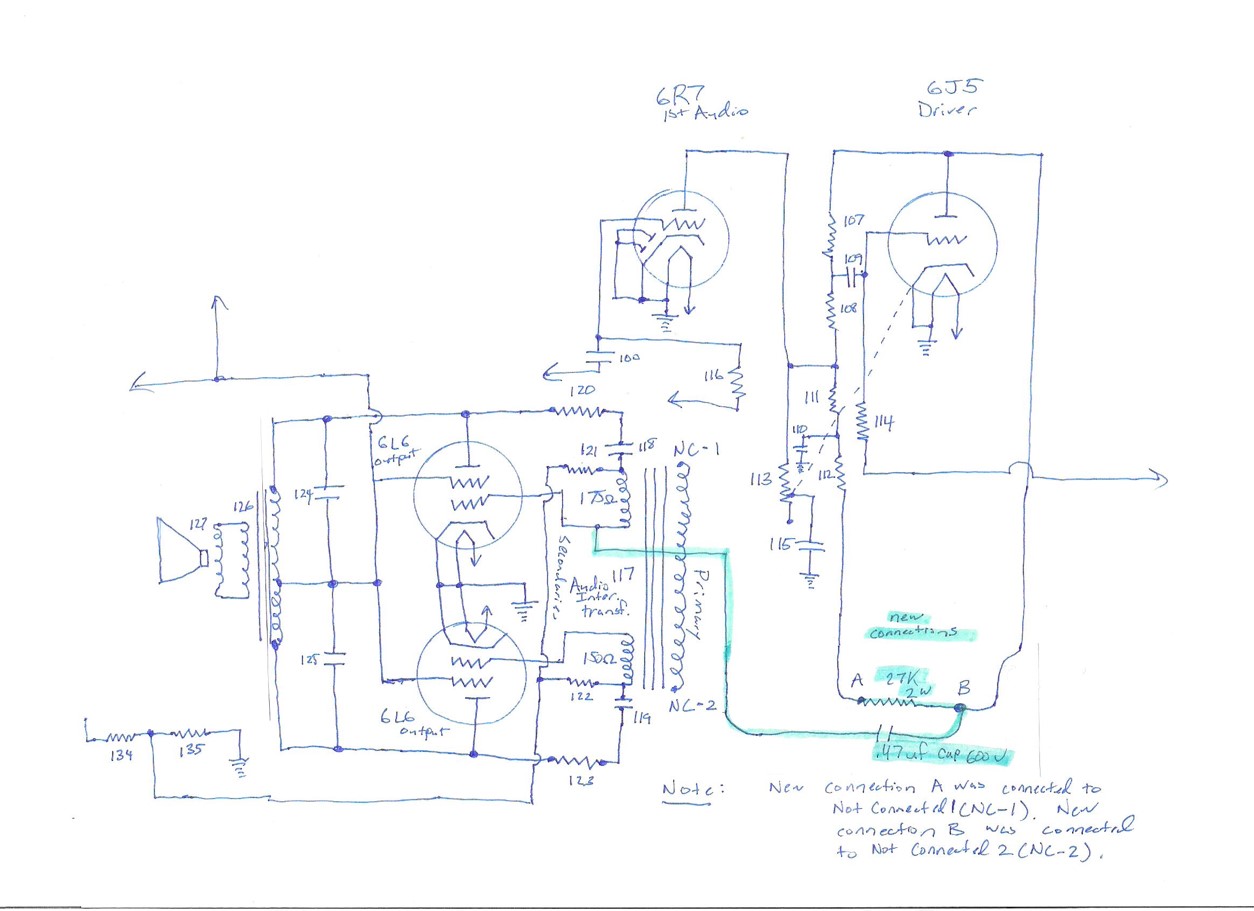 6R7
1st Audio
6J5
Driver
107
109
108
100
116
120
111
114
110
121
118
NC-1
6L6
output
113
112
175Ω
124
126
127
115
Secondaries
117
Audio
Inter.
transf.
Primary
new
connections
125
150Ω
A
27K
2W
B
122
NC-2
119
6L6
output
134
135
.47uf cap 600V
123
Note: New connection A was connected to
Not Connected 1 (NC-1). New
connection B was connected
to Not Connected 2 (NC-2).